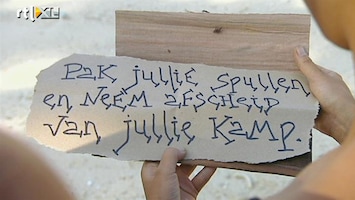 rtl XL
Pak jullie spullen
en neem afscheid
van jullie kamp.